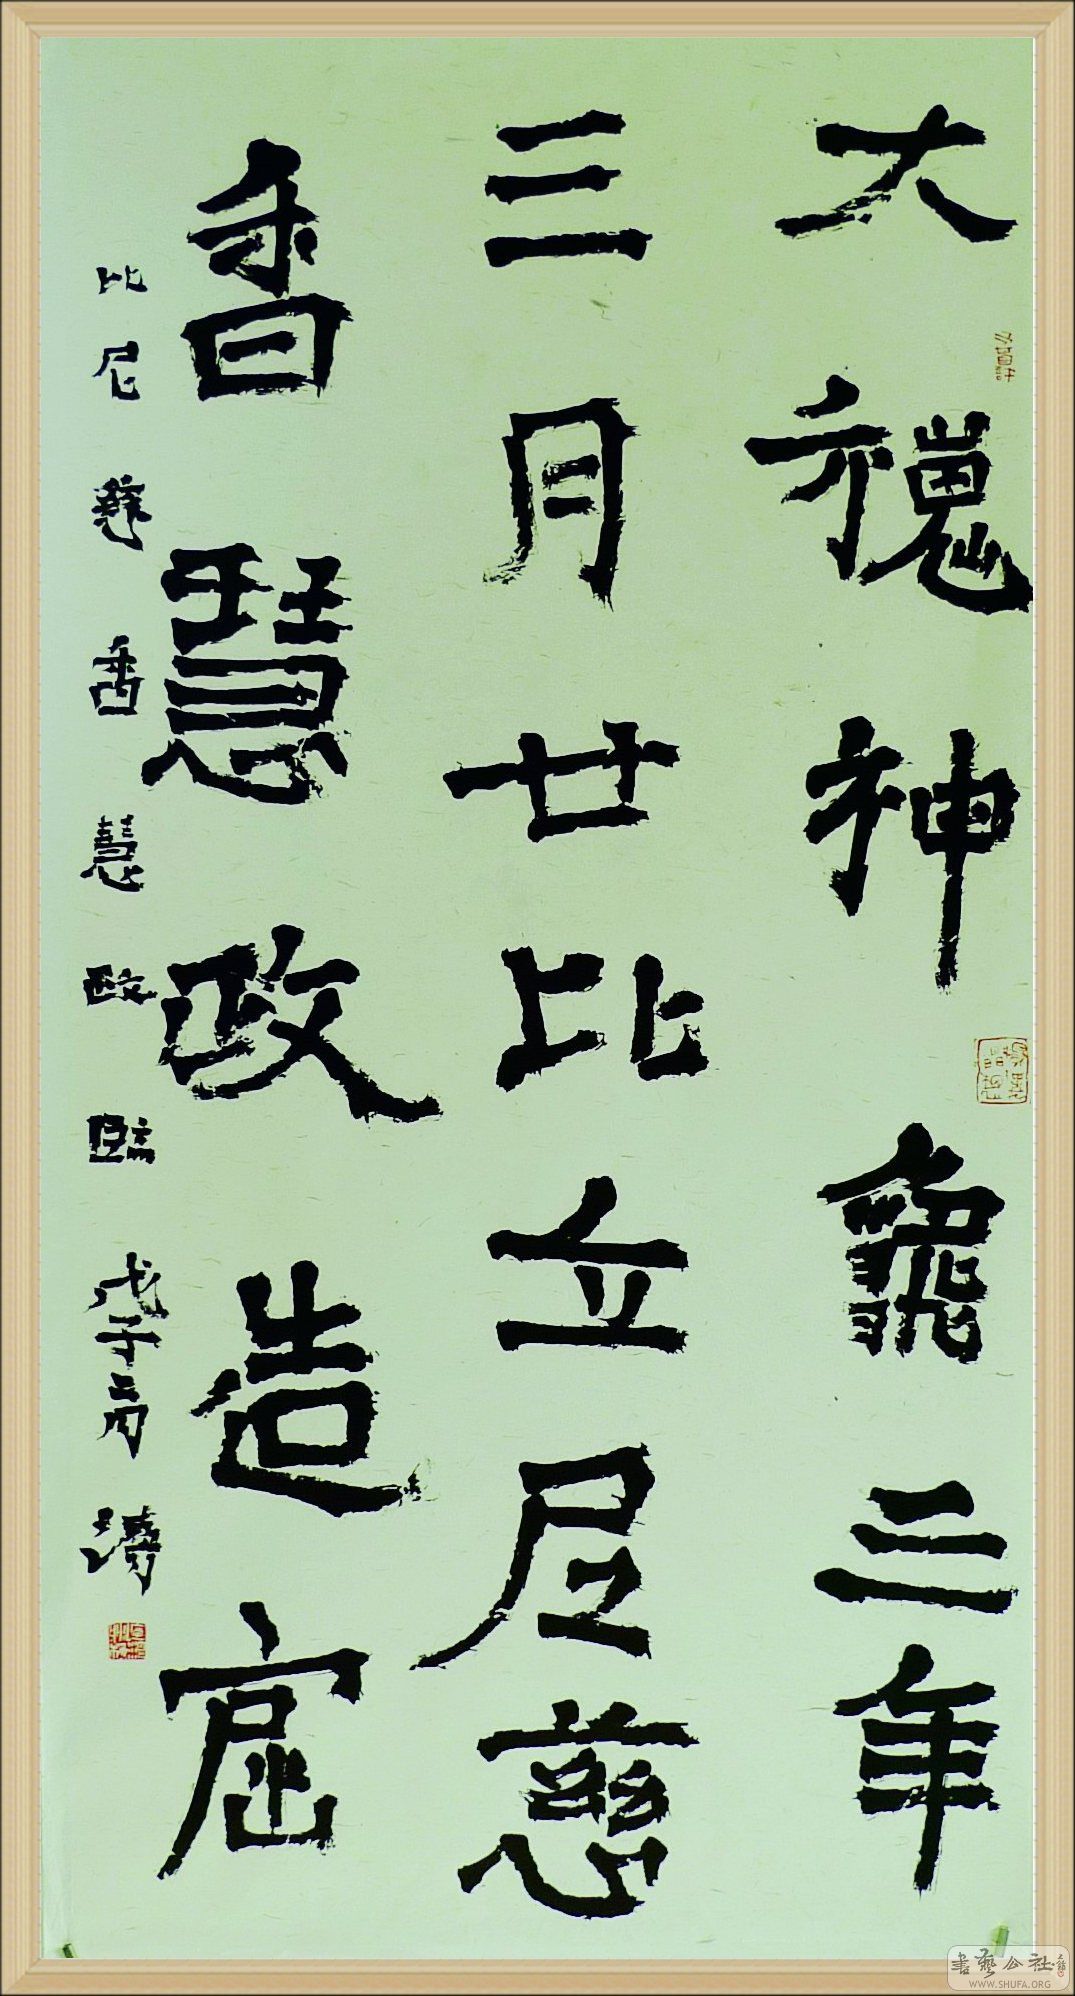 大魏神龜三年
三月廿比立尼慈
香慧政造窟
比尼慈香慧政臨 戊子高濤
書藝公社
WWW.SHUFA.ORG